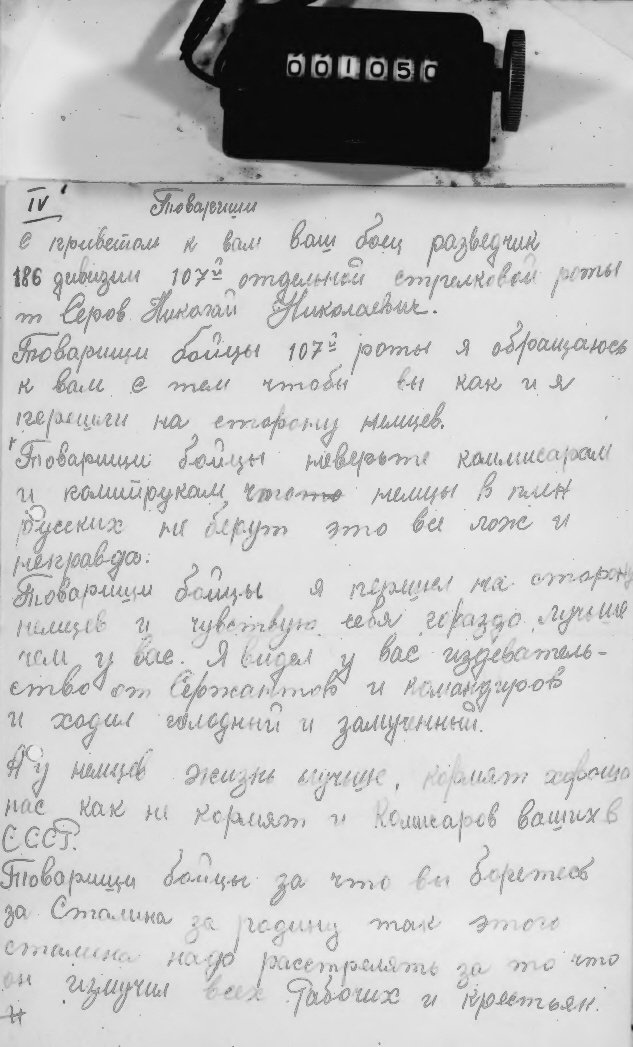 001050
IV
Товарищи
С приветом к вам ваш боец разведчик
186 дивизии 107й отдельной стрелковой роты
т Серов Николай Николаевич.
Товарищи бойцы 107й роты я обращаюсь
к вам с тем чтобы вы как и я
перешли на сторону немцев.
Товарищи бойцы неверьте коммисарам
и политрукам, что немцы в плен
русских не берут это все лож и
неправда.
Товарищи бойцы я перешел на сторону
немцев и чувствую себя гораздо лучше
чем у вас. Я видел у вас издеватель-
ство от Сержантов и командиров
и ходил голодный и замученный.
А у немцев жизнь лучше, кормят хорошо
нас как не кормят и Комисаров ваших в
СССР.
Товарищи бойцы за что вы боретесь
за Сталина за родину так этого
сталина надо расстрелять за то что
он измучил всех Рабочих и крестьян.